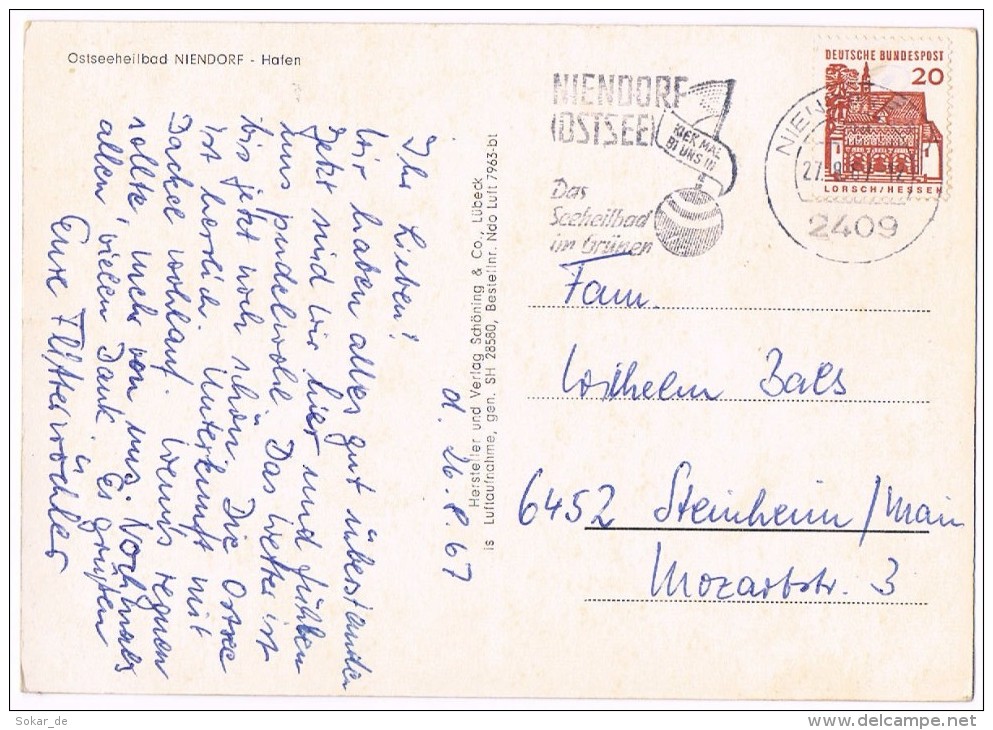 Ostseeheilbad NIENDORF - Hafen
NIENDORF
(OSTSEE)
KIEK MAL
BI UNS IN
Das
Seeheilbad
im Grünen
2409
DEUTSCHE BUNDESPOST
20
LORSCH/HESSEN
d. 26. 8. 67
Ihr Lieben!
Wir haben alles gut überstanden
Jetzt sind wir hier und fühlen
uns pudelwohl. Das Wetter ist
bis jetzt noch schön. Die Ostsee
ist herrlich. Unterkunft mit
Dackel wohlauf. Wenns regnen
sollte, mehr von uns. Nochmals
allen vielen Dank. Es grüßen
Eure
Hersteller und Verlag Schöning & Co., Lübeck
is Luftaufnahme, gen. SH 28580, Bestellnr. Ndo Luft 7963-bt
Fam.
Wilhelm Bals
6452 Steinheim/Main
Mozartstr. 3
Sokar_de
www.delcampe.net